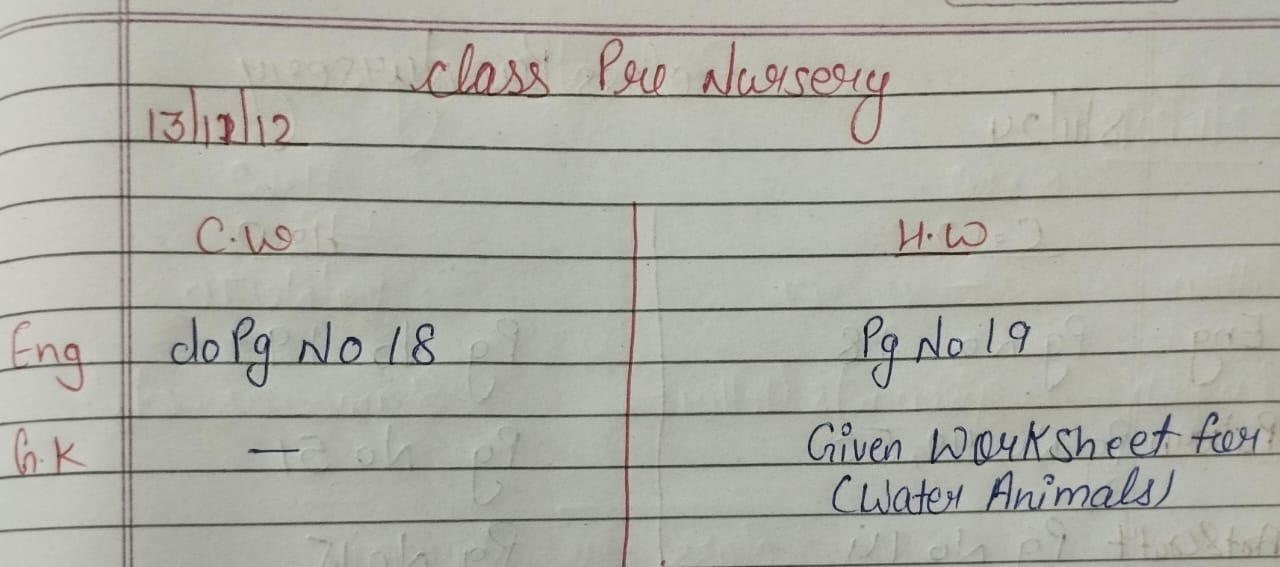 Class Pre Nursery
13/12/12
C.W H.W
Eng do Pg No 18 Pg No 19
G.K — Given Worksheet for
(Water Animals)